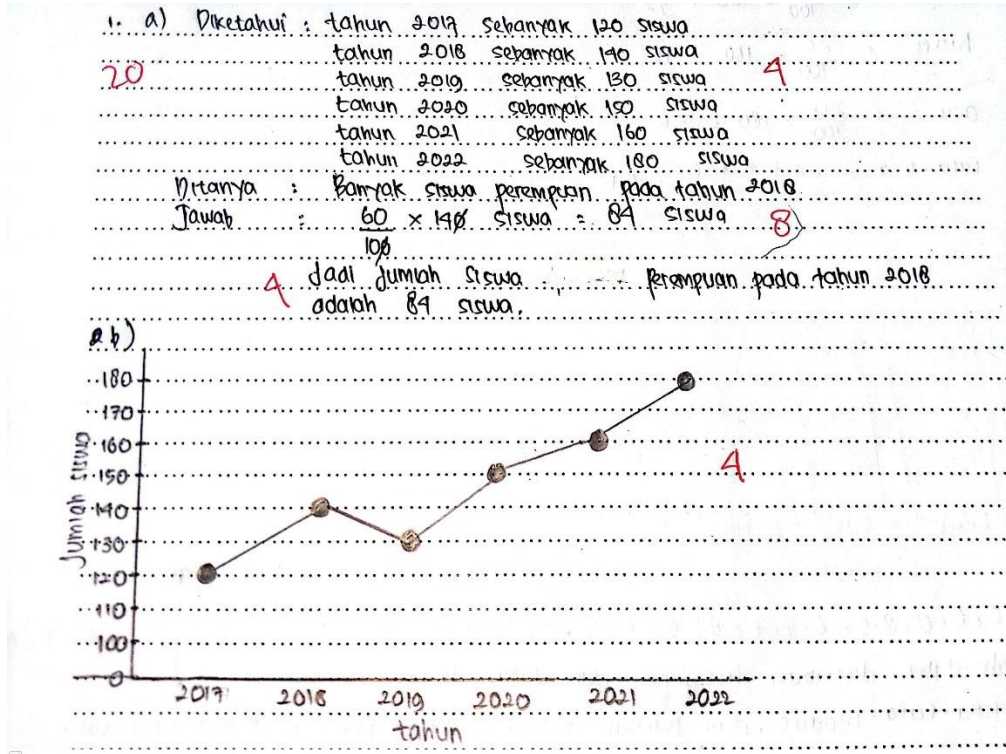 1. a) Diketahui : tahun 2017 sebanyak 120 siswa
tahun 2018 sebanyak 140 siswa
20 tahun 2019 sebanyak 130 siswa 4
tahun 2020 sebanyak 150 siswa
tahun 2021 sebanyak 160 siswa
tahun 2022 sebanyak 180 siswa
Ditanya : Banyak siswa perempuan pada tahun 2018
Jawab : 60 x 140 siswa = 84 siswa 8
100
4 Jadi jumlah siswa perempuan pada tahun 2018
adalah 84 siswa.
2 b)
180
170
160
150 4
140
130
120
110
100
0
Jumlah siswa
2017 2018 2019 2020 2021 2022
tahun